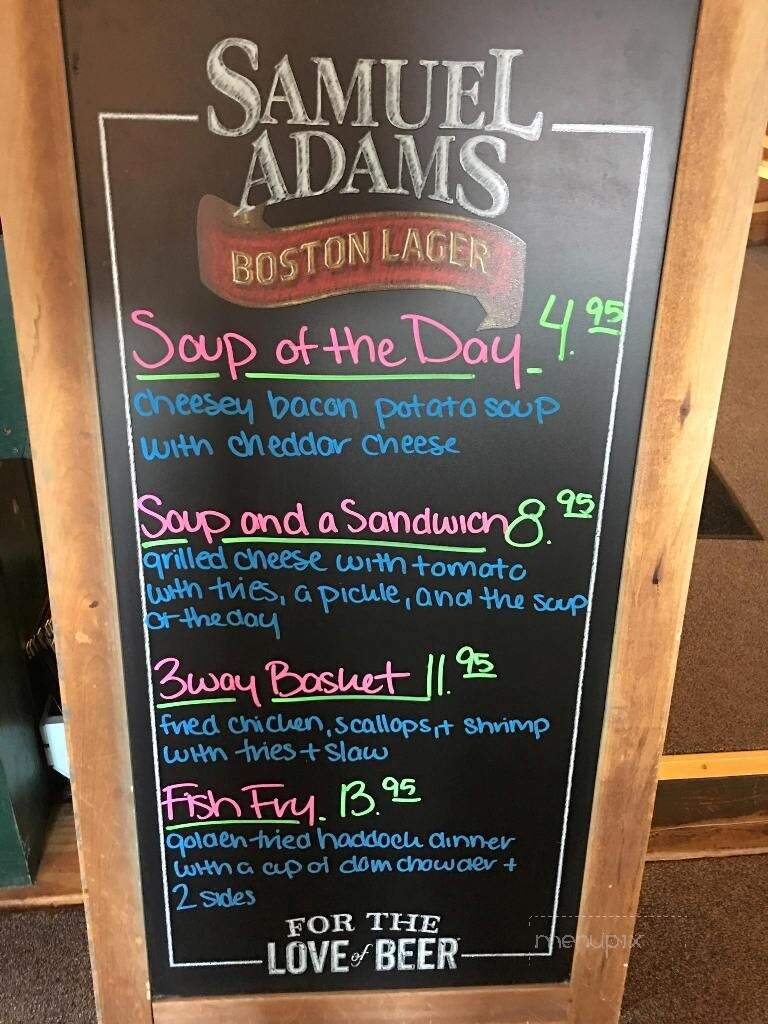 SAMUEL
ADAMS
BOSTON LAGER
Soup of the Day - 4.95
cheesey bacon potato soup
with cheddar cheese
Soup and a Sandwich 8.95
grilled cheese with tomato
with fries, a pickle, and the soup
of the day
3way Basket 11.95
fried chicken, scallops, + shrimp
with fries + slaw
Fish Fry. 13.95
golden-fried haddock dinner
with a cup of clam chowder +
2 sides
FOR THE
LOVE of BEER
menupix